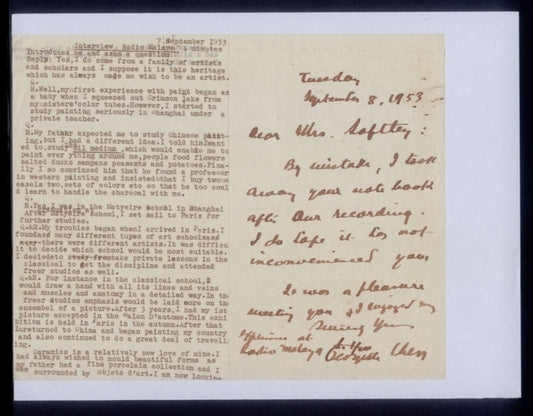 7,September 1953
Interview Radio Malaya 4 minutes
Introduces me and asks a question:
Reply: Yes,I do come from a family of artists
and scholars and I suppose it is this heritage
which has always made me wish to be an artist.
Q.
R.Well,my first experience with paint began as
a baby when I squeezed out Crimson Lake from
my sisters'color tubes.However,I started to
study painting seriously in Shanghai under a
private teacher.
Q.
R.My father expected me to study Chinese paint-
ing,but I had a different idea.I told him I want
ed to study oil medium,which would enable me to
paint everything around me,people food flowers
salted ducks sampans peasants and potatoes.Fina-
lly I so convinced him that he found a professor
in western painting and insisted that I buy two
easels two sets of colors etc so that he too coul
d learn to handle the charcoal with me.
Q.
R.Yes I was in the Metyeire School in Shanghai
After Metyeire School,I set sail to Paris for
further studies.
Q.&R.My troubles began when I arrived in Paris.I
founded many different types of art schools and
many there were different artists.It was difficu
lt to decide which school would be most suitable.
I decided to study from take private lessons in the
classical to get the discipline and attended
freer studios as well.
Q.&R. For instance in the classical school,I
would draw a hand with all its lines and veins
and muscles and anatomy in a detailed way.In the
freer studios emphasis would be laid more on the
ensembel of a picture.After 3 years,I had my 1st
picture accepted in the "Salon D'automne.This exhi
bition is held in Paris in the autumn.After that
I returned to China and began painting my country
and also continued to do a great deal of travell
ing.
Ceramics is a relatively new love of mine.I
had always wished to mould beautiful forms as
my father had a fine porcelain collection and I
was surrounded by objets d'art.I am now lookin
Tuesday
September 8, 1953
Dear Mrs.
By mistake, I took
away your note book
after our recording.
I do hope it has not
inconvenienced you
It was a pleasure
meeting you & I enjoyed my
at
Radio Malaya
Georgette Chen